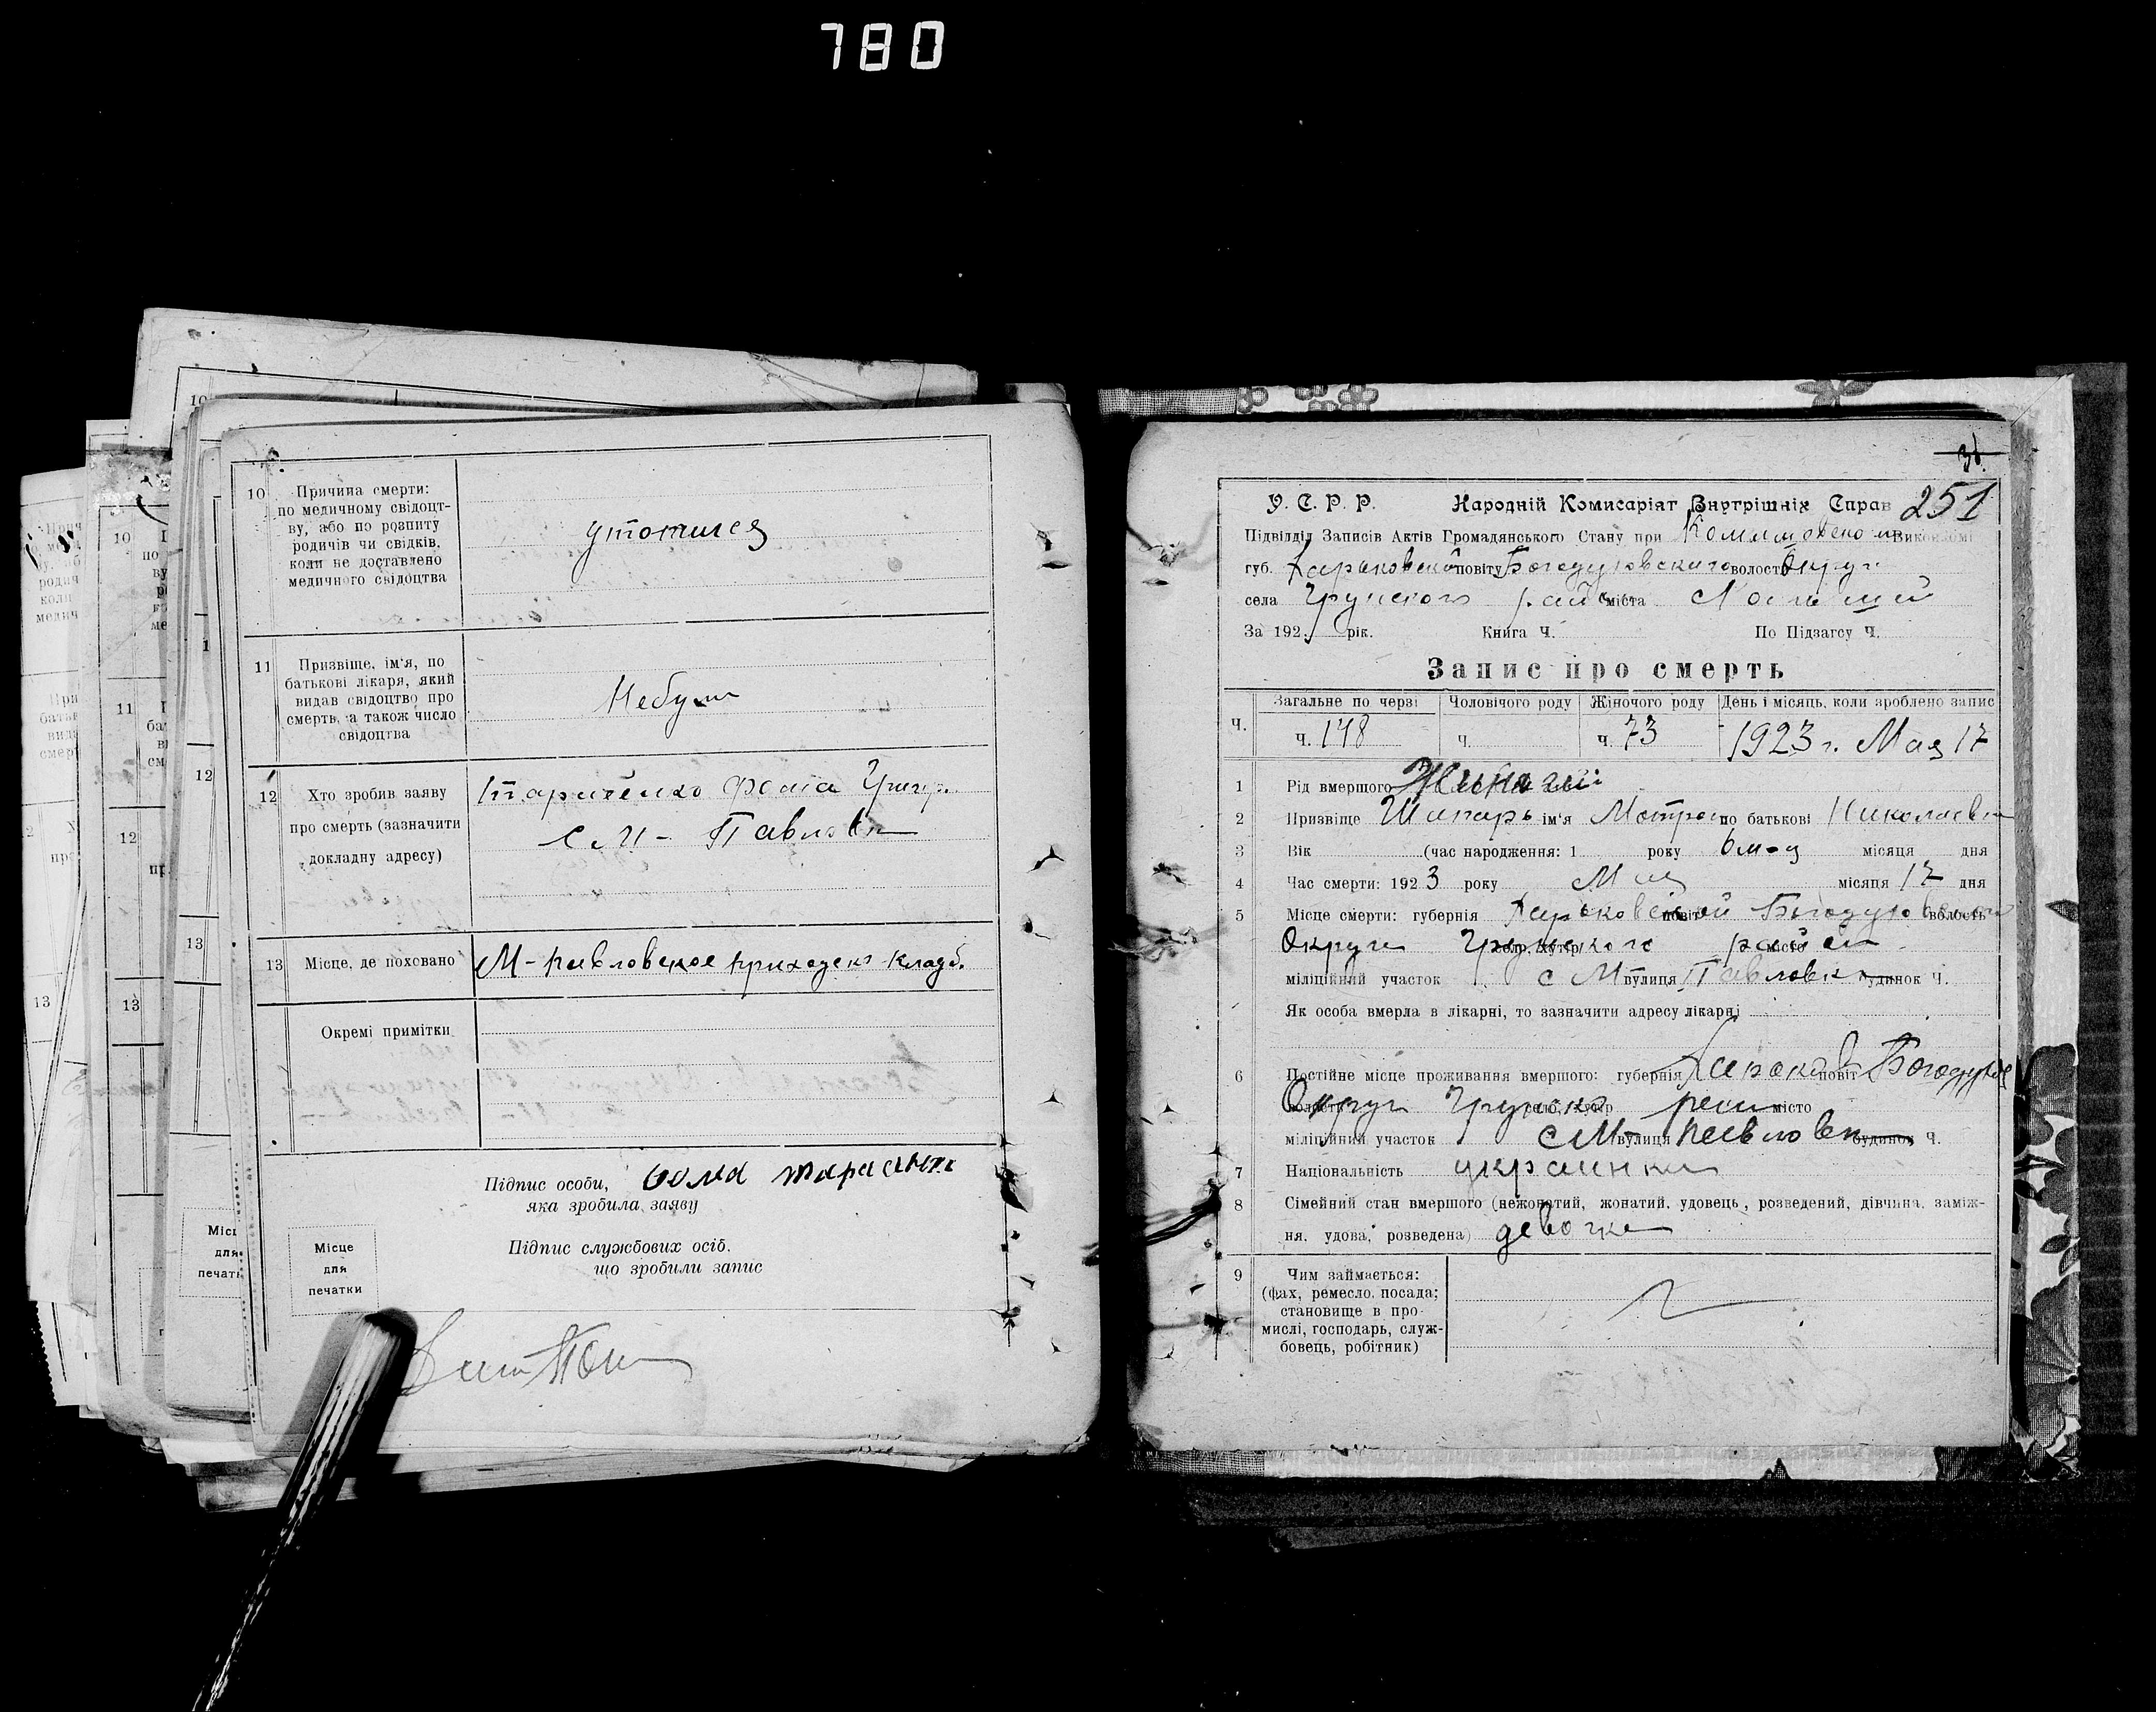 780
10 Причина смерти:
по медичному свідоцт-
ву, або по розпиту
родичів чи свідків,
коли не доставлено
медичного свідоцтва
утопился
11 Призвіще, ім'я, по
батькові лікаря, який
видав свідоцтво про
смерть, а також число
свідоцтва
Небуло
12 Хто зробив заяву
про смерть (зазначити
докладну адресу)
Фома Григор.
с М- Павловк
13 Місце, де поховано
М-Павловское приходско кладб.
Окремі примітки
Підпис особи,
яка зробила заяву
Підпис службових осіб,
що зробили запис
Місце
для
печатки
251
У. С. Р. Р. Народній Комисаріят Внутрішніх Справ
Підвідділ Записів Актів Громадянського Стану при Виконкомі
губ. Харьковской повіту Богодуховского волости Округи
села Грунского района міста
За 192 рік. Книга Ч. По Підзагсу Ч.
Запис про смерть
Ч. Загальне по черзі Чоловічого роду Жіночого роду День і місяць, коли зроблено запис
ч. 148 ч. ч. 73 1923 г. Мая 17
1 Рід вмершого
2 Призвіще Шинарь ім'я Мотрона по батькові Николаевн
3 Вік (час народження: 1 року 6 м-ц місяця дня
4 Час смерти: 1923 року Мая місяця 17 дня
5 Місце смерти: губернія Харьковской повіт Богодуховской волость
Округи село, хутір Грунского район місто
міліційний участок с М вулиця Павловк будинок Ч.
Як особа вмерла в лікарні, то зазначити адресу лікарні
6 Постійне місце проживання вмершого: губернія Харьков повіт Богодухов
волость Округи Грунско село, хутір район місто
міліційний участок с М- вулиця Павловк будинок Ч.
7 Національність украинка
8 Сімейний стан вмершого (нежонатий, жонатий, удовець, розведений, дівчина, заміж-
ня, удова, розведена) девочка
9 Чим займається:
(фах, ремесло, посада;
становище в про-
мислі, господарь, служ-
бовець, робітник)